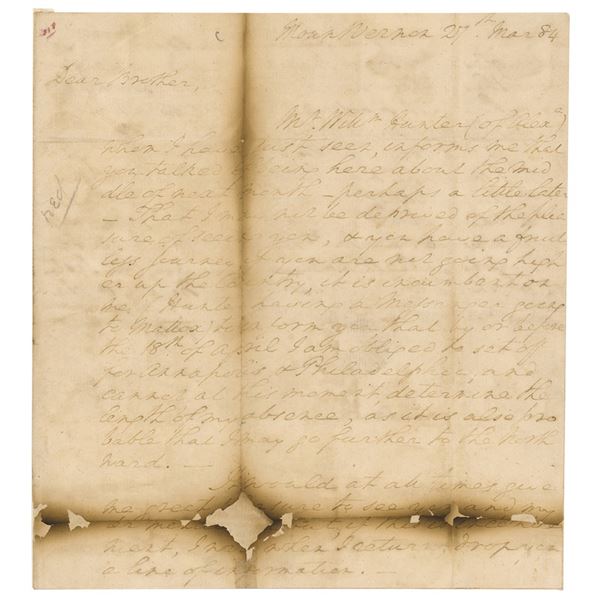 Mount Vernon 27th Mar 84
Dear Brother,
Mr. Willm Hunter (of Alexa)
whom I have just seen, informs me that
you talked of being here about the mid
dle of next month – perhaps a little later
– That I may not be deprived of the plea
sure of seeing you, & you have a fruit
less journey if you are not going high
er up the Country, it is incumbent on
me (Mr Hunter having a Messenger going
to Mattox) to inform you that by or before
the 18th of April I am obliged to set off
for Annapolis & Philadelphia, and
cannot at this moment determine the
length of my absence, as it is also pro
bable that I may go further to the North
ward. —
It would at all times give
me great pleasure to see you and my
I may, when I return, drop you
a line of information. —
P34